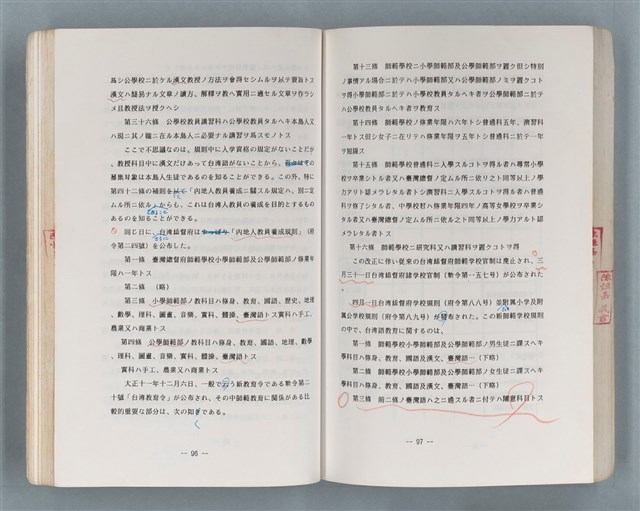 為シ公學校ニ於ケル漢文教授ノ方法ヲ會得セシムルヲ以テ要旨トス
漢文ハ簡易ナル文章ノ讀方、解釋ヲ教ヘ實用ニ適セル文章ヲ作ラシ
メ且教授法ヲ授クヘシ
第三十六條 公學校教員講習科ハ公學校教員タルヘキ本島人又
ハ現ニ其ノ職ニ在ル本島人ニ必要ナル講習ヲ爲スモノトス
ここで不思議なのは、規則中に入学資格の規定がないことだが
、教授科目中に漢文だけあって台湾語がないことから、
募集対象は本島人生徒であるのを知ることができる。この外、特に
第四十二條の補則を「内地人教員養成ニ關スル規定ハ、別ニ定
ムル所ニ依ル」からも、これは台湾人教員の養成を目的とするもの
あるのを知ることができる。
同じ日に、台湾総督府は「内地人教員養成規則」(府
令第二四號)を公布した。
第一條 臺灣總督府師範學校小學師範部及公學師範部ノ修業年
限ハ一年トス
第二條 (略)
第三條 小學師範部ノ教科目ハ修身、教育、國語、歷史、地理
、數學、理科、圖畫、音樂、實科、體操、臺灣語トス實科ハ手工、
農業又ハ商業トス
第四條 公學師範部ノ教科目ハ修身、教育、國語、地理、數學
、理科、圖畫、音樂、實科、體操、臺灣語トス
實科ハ手工、農業又ハ商業トス
大正十一年十二月六日、一般で う新教育令である勅令第二
十號「台湾教育令」が公布され、その中師範教育に関係がある比
較的重要な部分は、次の如ぎである。
く
-- 96 --
第十三條 師範學校ニ小學師範部及公學師範部ヲ置ク但シ特別
ノ事情アル場合ニ於テハ小學師範部又ハ公學師範部ノミヲ置クコト
ヲ得小學師範部ニ於テハ小學校教員タルヘキ者ヲ公學師範部ニ於テ
ハ公學校教員タルヘキ者ヲ教育ス
第十四條 師範學校ノ修業年限ハ六年トシ普通科五年、演習科
一年トス但シ女子ニ在リテハ修業年限ヲ五年トシ普通科ニ於テ一年
ヲ短縮ス
第十五條 師範學校普通科ニ入學スルコトヲ得ル者ハ尋常小學
校ヲ卒業シタル者又ハ臺灣總督ノ定ムル所ニ依リ之ト同等以上ノ學
力アリト認メラレタル者トシ演習科ニ入學スルコトヲ得ル者ハ普通
科ヲ修了シタル者、中學校若ハ修業年限四年ノ高等女學校ヲ卒業シ
タル者又ハ臺灣總督ノ定ムル所ニ依ル之ト同等以上ノ學力アルト認
メラレタル者トス
第十六條 師範學校ニ研究科又ハ講習科ヲ置クコトヲ得
この改正に伴い従来の台湾総督府師範学校官制は廃止され、三
月三十一日台湾総督府諸学校官制(勅令第一五七号)が公布された
。
四月一日台湾総督府学校規則(府令第八八号)並附属小学及附
属公学校規則(府令第八九号)が發布された。この新師範学校規則
の中で、台湾語教育に関するのは、
第一條 師範學校小學師範部及公學師範部ノ男生徒ニ課スヘキ
學科目ハ修身、教育、國語及漢文、臺灣語…(下略)
第二條 師範學校小學師範部及公學師範部ノ女生徒ニ課スヘキ
學科目ハ修身、教育、國語及漢文、臺灣語…(下略)
第三條 前二條ノ臺灣語ハ之ニ通スル者ニ付テハ隨意科目トス
-- 97 --